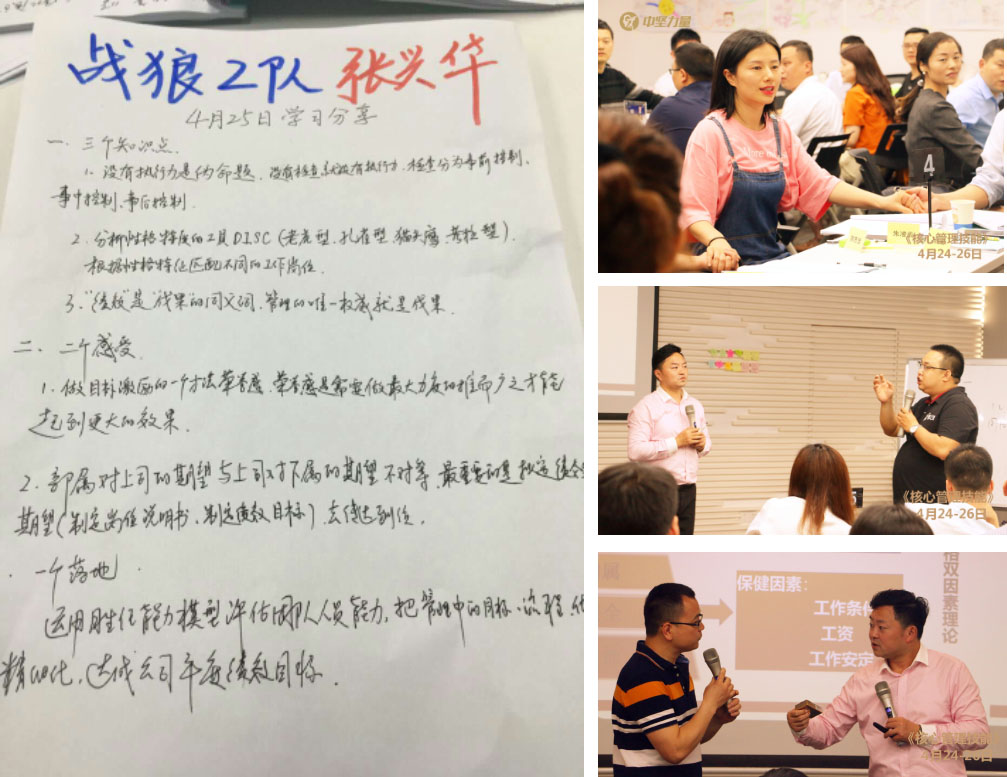 战狼2队 张兴华
4月25日学习分享
一、三个知识点
1. 没有执行力是伪命题，没有检查就没有执行力，检查分为事前控制、
事中控制、事后控制.
2. 分析性格特质的工具DISC(老虎型、孔雀型、猫头鹰、考拉型).
根据性格特征匹配不同的工作岗位.
3. "绩效"是"成果"的同义词.管理的唯一权威就是成果.
二、二个感受.
1. 做目标激励的一个方法荣誉感.荣誉感是需要做最大力度的推而广之才能
起到更大的效果.
2. 部属对上司的期望与上司对下属的期望不对等.最重要的是拟定
期望(制定岗位说明书、制定绩效目标).去传达到位.
一个落地
运用胜任能力模型评估团队人员能力，把管理中的目标、流程、
精细化，达成公司年度绩效目标.
中坚力量
4
《核心管理技能》
4月24-26日
《核心管理技能》
4月24-26日
属
全
保健因素：
工作条件
工资
工作安定
双因素理论
《核心管理技能》
4月24-26日